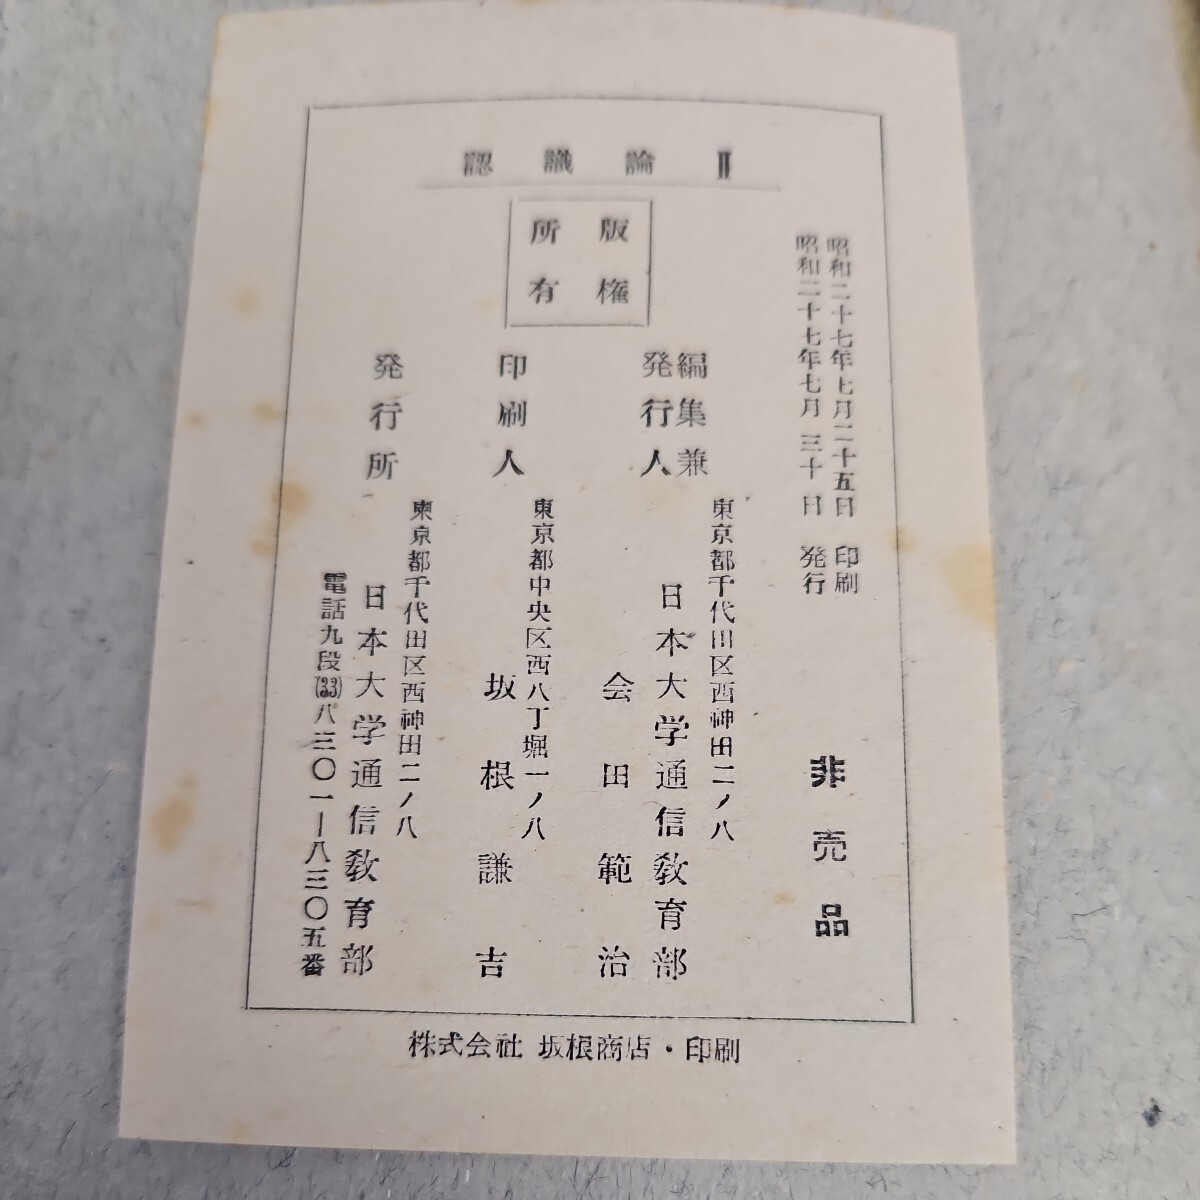 認識論 II
版権
所有
昭和二十七年七月二十五日 印刷
昭和二十七年七月三十日 発行
非売品
編集兼
発行人
東京都千代田区西神田二ノ八
日本大学通信教育部
会田範治
印刷人
東京都中央区西八丁堀一ノ八
坂根謙吉
発行所
東京都千代田区西神田二ノ八
日本大学通信教育部
電話九段(33)八三〇一―八三〇五番
株式会社 坂根商店・印刷